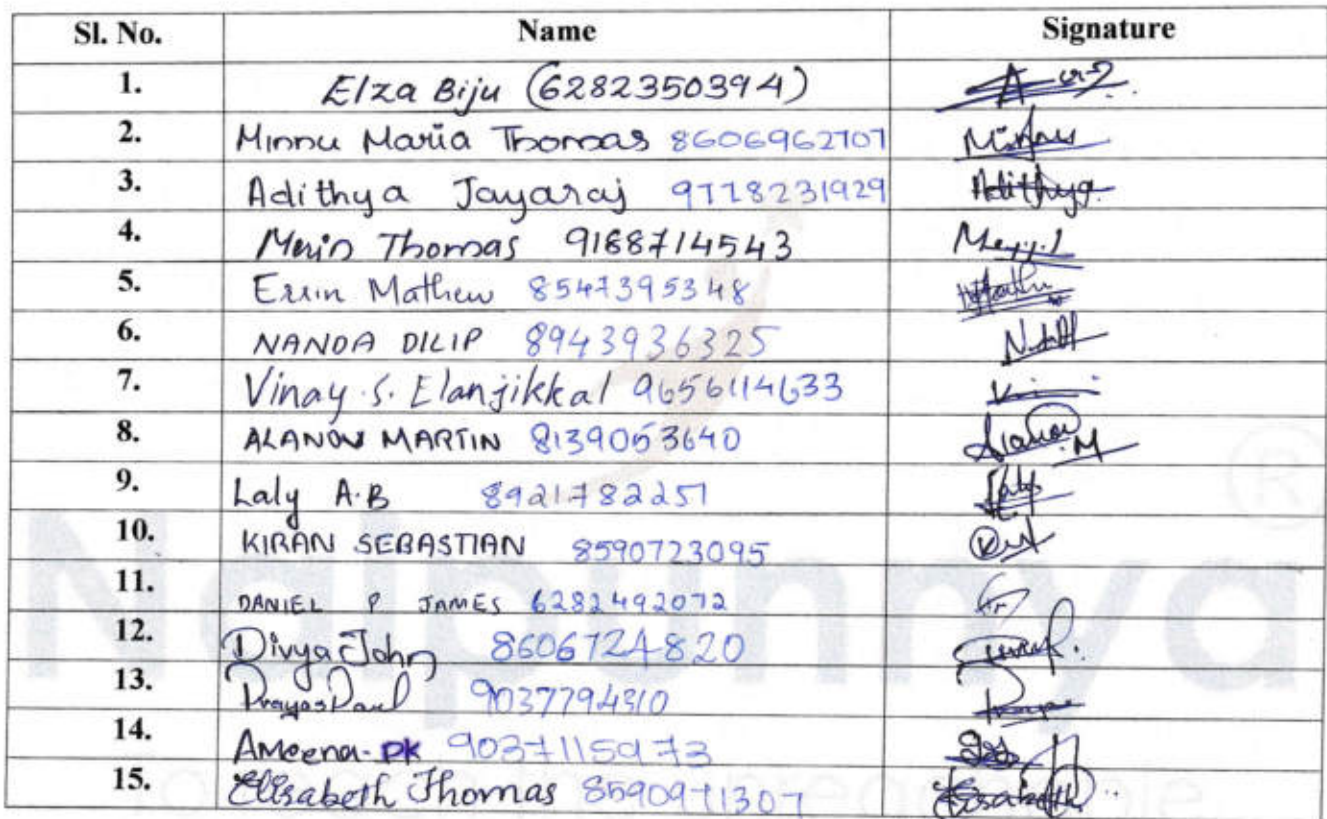 Sl. No. Name Signature
1. Elza Biju (6282350394)
2. Minnu Maria Thomas 8606962707 Minnu
3. Adithya Jayaraj 9778231929 Adithya
4. Merin Thomas 9188714543
5. Errin Mathew 8547395348
6. NANDA DILIP 8943936325
7. Vinay S. Elanjikkal 9656114633
8. MARTIN 8139053640
9. Laly A.B 8921782251 Laly
10. KIRAN SEBASTIAN 8590723095
11. DANIEL P JAMES 6282492072
12. Divya John 8606724820
13. Prayas Paul 9037794310
14. Ameena PK 9037115973
15. Elisabeth Thomas 8590971307 Elisabeth
Naipunnya